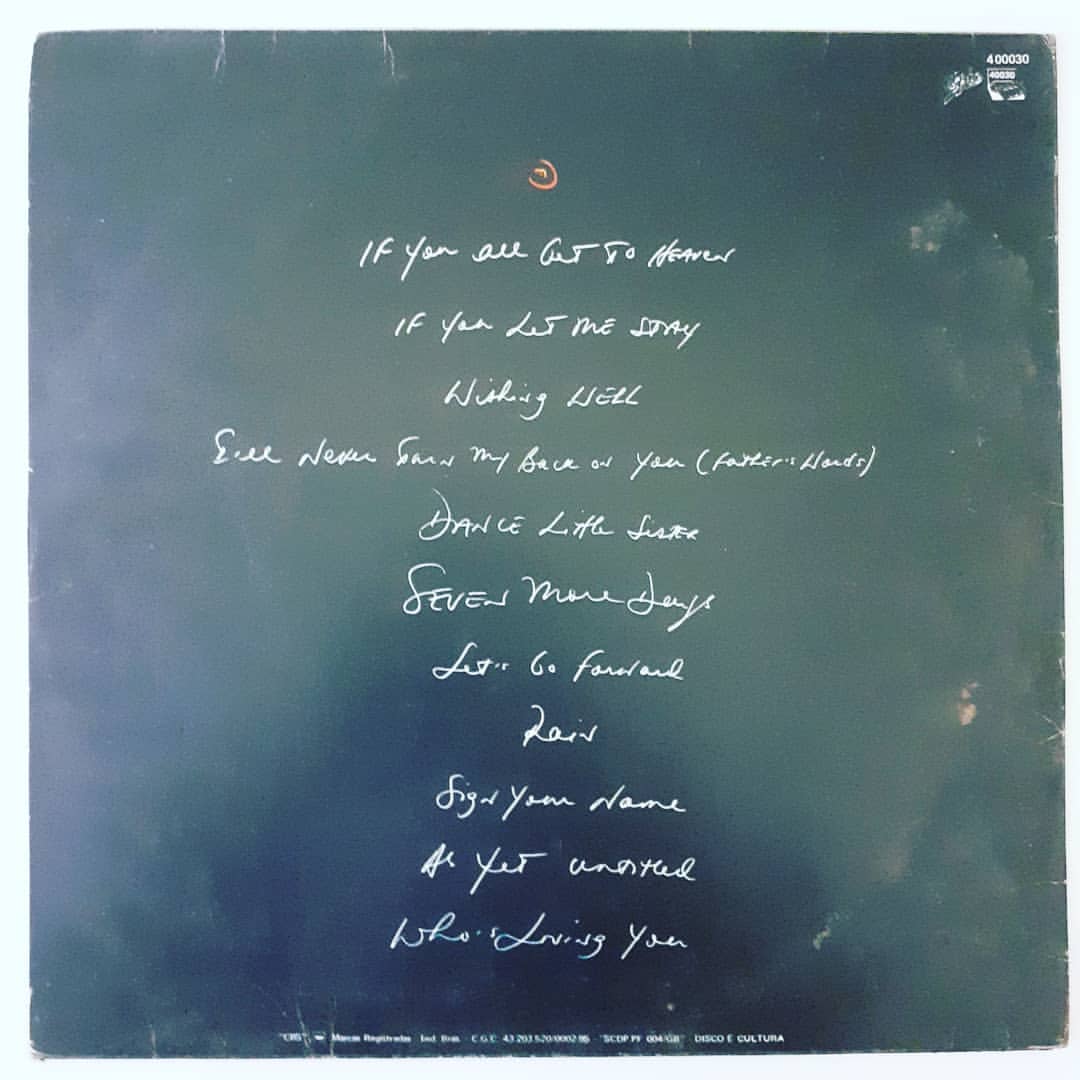 400030
40030
If You All Get To Heaven
If You Let Me Stay
Wishing Well
I'll Never Turn My Back on You (Father's Words)
Dance Little Sister
Seven More Days
Let's Go Forward
Rain
Sign Your Name
As Yet Untitled
Who's Loving You
"CBS", Marcas Registradas Ind. Bras. C.G.C. 43.203.520/0002-95 "SCDP PF 004/GB" DISCO É CULTURA